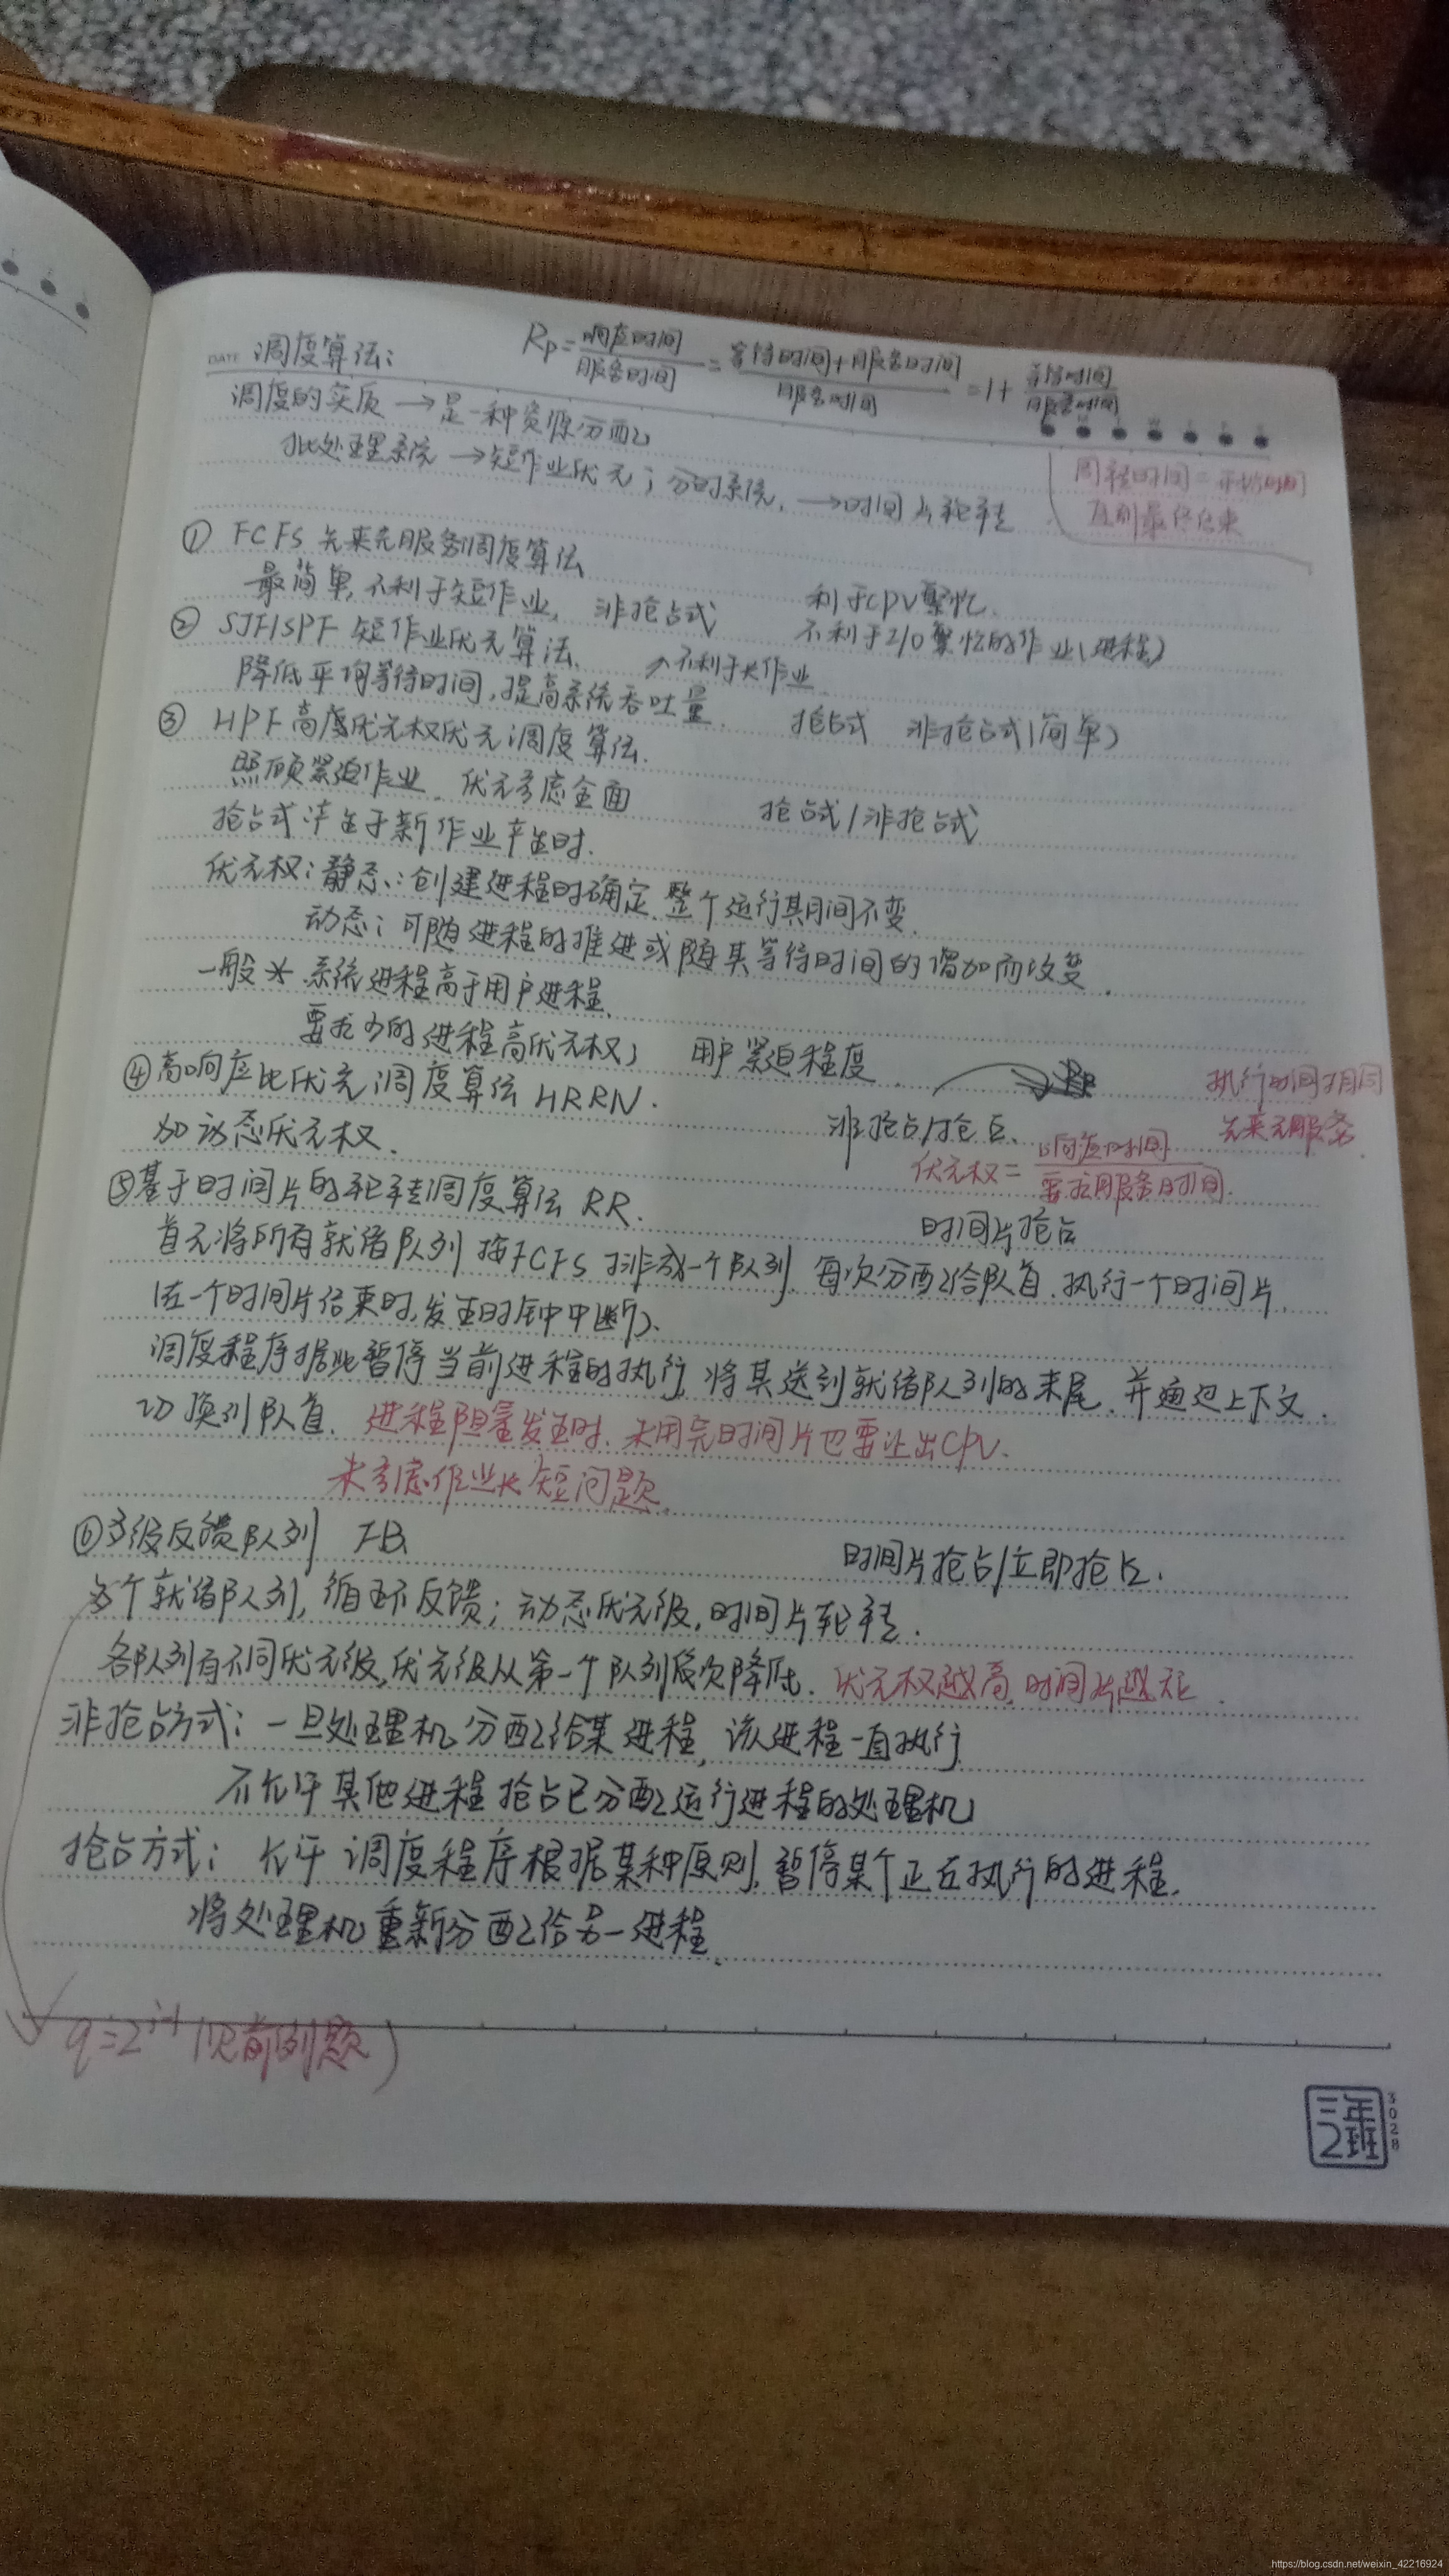 DATE 调度算法:
Rp = 响应时间/服务时间 = 等待时间+服务时间/服务时间 = 1 + 等待时间/服务时间
调度的实质 → 是一种资源分配
批处理系统 → 短作业优先; 分时系统. → 时间片轮转
周转时间 = 开始时间
直到最终结束
① FCFS 先来先服务调度算法
最简单, 不利于短作业, 非抢占式 利于CPU繁忙.
不利于I/O繁忙的作业(进程)
② SJF/SPF 短作业优先算法. ↗不利于长作业
降低平均等待时间, 提高系统吞吐量. 抢占式 非抢占式(简单)
③ HPF 高度优先权优先调度算法.
照顾紧迫作业. 优先考虑全面 抢占式/非抢占式
抢占式 产生于新作业产生时.
优先权: 静态: 创建进程时确定, 整个运行期间不变.
动态: 可随进程的推进或随其等待时间的增加而改变.
一般* 系统进程高于用户进程.
要求少的进程高优先权; 用户紧迫程度.
④ 高响应比优先调度算法 HRRN. 非抢占/抢占.
执行时间相同
先来先服务.
加动态优先权. 优先权 = 响应时间/要求服务时间.
⑤ 基于时间片的轮转调度算法 RR. 时间片抢占
首先将所有就绪队列按FCFS排成一个队列. 每次分配给队首. 执行一个时间片.
(在一个时间片结束时, 发生时钟中断).
调度程序据此暂停当前进程的执行, 将其送到就绪队列的末尾. 并通过上下文.
切换到队首. 进程阻塞发生时. 未用完时间片也要让出CPU.
未考虑作业长短问题.
⑥ 多级反馈队列 FB 时间片抢占/立即抢占.
多个就绪队列, 循环反馈; 动态优先级, 时间片轮转.
各队列有不同优先级, 优先级从第一个队列依次降低. 优先权越高, 时间片越短.
非抢占方式: 一旦处理机分配给某进程, 该进程一直执行
不允许其他进程抢占已分配运行进程的处理机
抢占方式: 允许调度程序根据某种原则, 暂停某个正在执行的进程.
将处理机重新分配给另一进程.
q=2^i-1 (见前例题)
三年2班
3028
https://blog.csdn.net/weixin_42216924